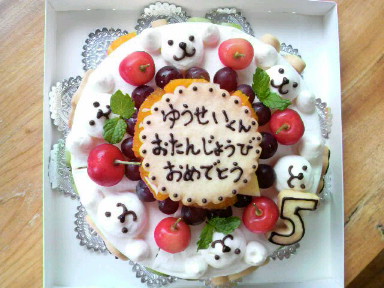 ゆうせいくん
おたんじょうび
おめでとう
5